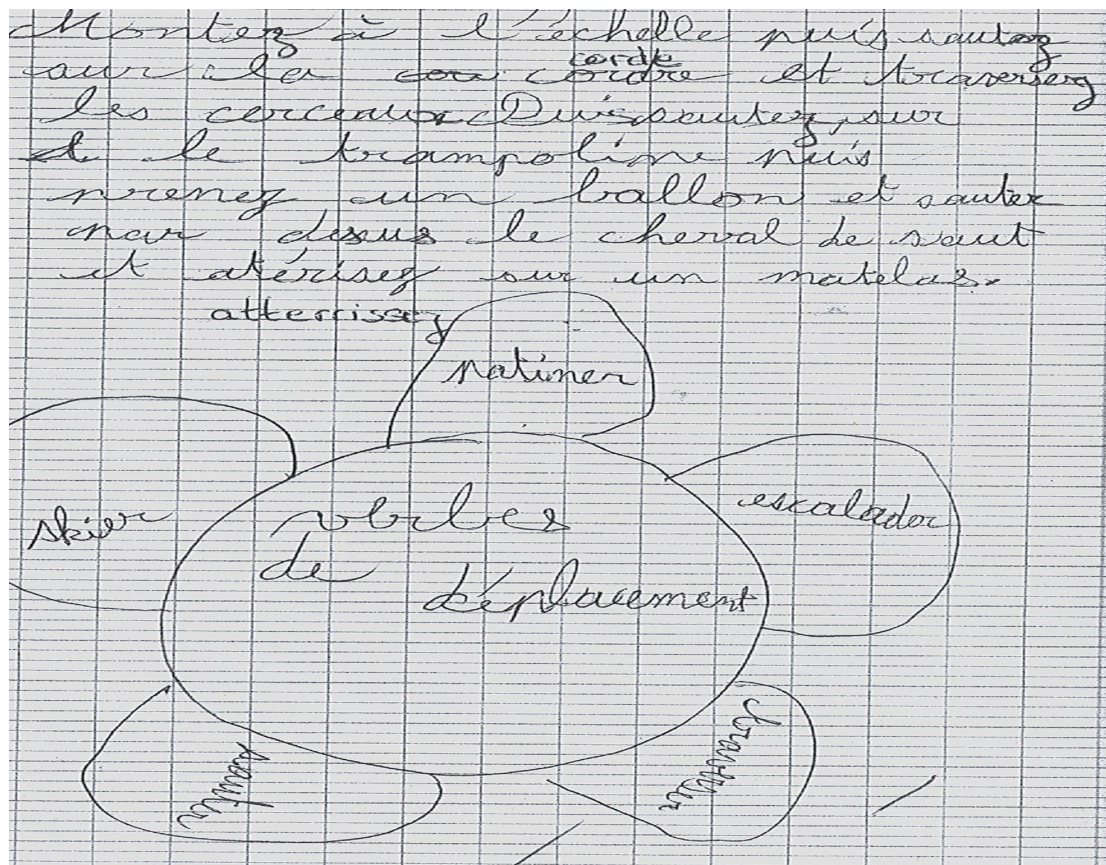 Montez à l'échelle puis sautez
sur la cou cordre et traversez
corde
les cerceaux. Puis sautez, sur
et le trampoline puis
prenez un ballon et sauter
par desus le cheval de saut
et atérisez sur un matelas.
atterrissez
patiner
skier
escalader
verbes
de déplacement
sauter
traverser